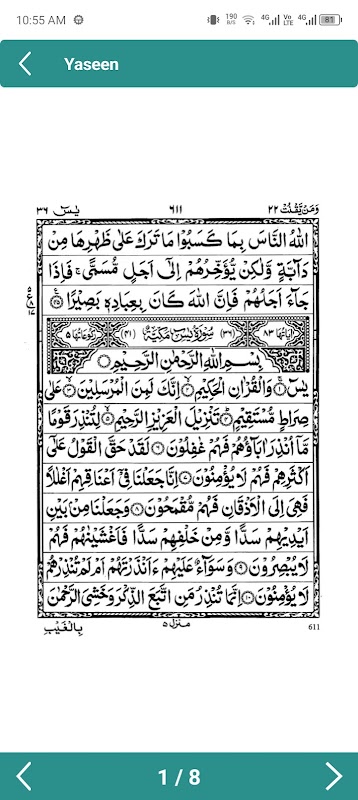 10:55 AM
190 B/S 4G Vo LTE 4G 81
Yaseen
وَمَنْ يَّقْنُتْ ٢٢ ٦١١ يٰسٓ ٣٦
اللّٰهُ النَّاسَ بِمَا كَسَبُوْا مَا تَرَكَ عَلٰى ظَهْرِهَا مِنْ
دَآبَّةٍ وَّلٰكِنْ يُّؤَخِّرُهُمْ اِلٰٓى اَجَلٍ مُّسَمًّى ۚ فَاِذَا
جَآءَ اَجَلُهُمْ فَاِنَّ اللّٰهَ كَانَ بِعِبَادِهٖ بَصِيْرًا ﴿٤٥﴾
اٰيَاتُهَا ٨٣ (٣٦) سُوْرَةُ يٰسٓ مَكِّيَّةٌ (٤١) رُكُوْعَاتُهَا ٥
بِسْمِ اللّٰهِ الرَّحْمٰنِ الرَّحِيْمِ
يٰسٓ ﴿١﴾ وَالْقُرْاٰنِ الْحَكِيْمِ ﴿٢﴾ اِنَّكَ لَمِنَ الْمُرْسَلِيْنَ ﴿٣﴾ عَلٰى
صِرَاطٍ مُّسْتَقِيْمٍ ﴿٤﴾ تَنْزِيْلَ الْعَزِيْزِ الرَّحِيْمِ ﴿٥﴾ لِتُنْذِرَ قَوْمًا
مَّآ اُنْذِرَ اٰبَآؤُهُمْ فَهُمْ غٰفِلُوْنَ ﴿٦﴾ لَقَدْ حَقَّ الْقَوْلُ عَلٰٓى
اَكْثَرِهِمْ فَهُمْ لَا يُؤْمِنُوْنَ ﴿٧﴾ اِنَّا جَعَلْنَا فِيْٓ اَعْنَاقِهِمْ اَغْلٰلًا
فَهِيَ اِلَى الْاَذْقَانِ فَهُمْ مُّقْمَحُوْنَ ﴿٨﴾ وَجَعَلْنَا مِنْۢ بَيْنِ
اَيْدِيْهِمْ سَدًّا وَّمِنْ خَلْفِهِمْ سَدًّا فَاَغْشَيْنٰهُمْ فَهُمْ
لَا يُبْصِرُوْنَ ﴿٩﴾ وَسَوَآءٌ عَلَيْهِمْ ءَاَنْذَرْتَهُمْ اَمْ لَمْ تُنْذِرْهُمْ
لَا يُؤْمِنُوْنَ ﴿١٠﴾ اِنَّمَا تُنْذِرُ مَنِ اتَّبَعَ الذِّكْرَ وَخَشِيَ الرَّحْمٰنَ
بِالْغَيْبِ
منزل ٥
611
1 / 8